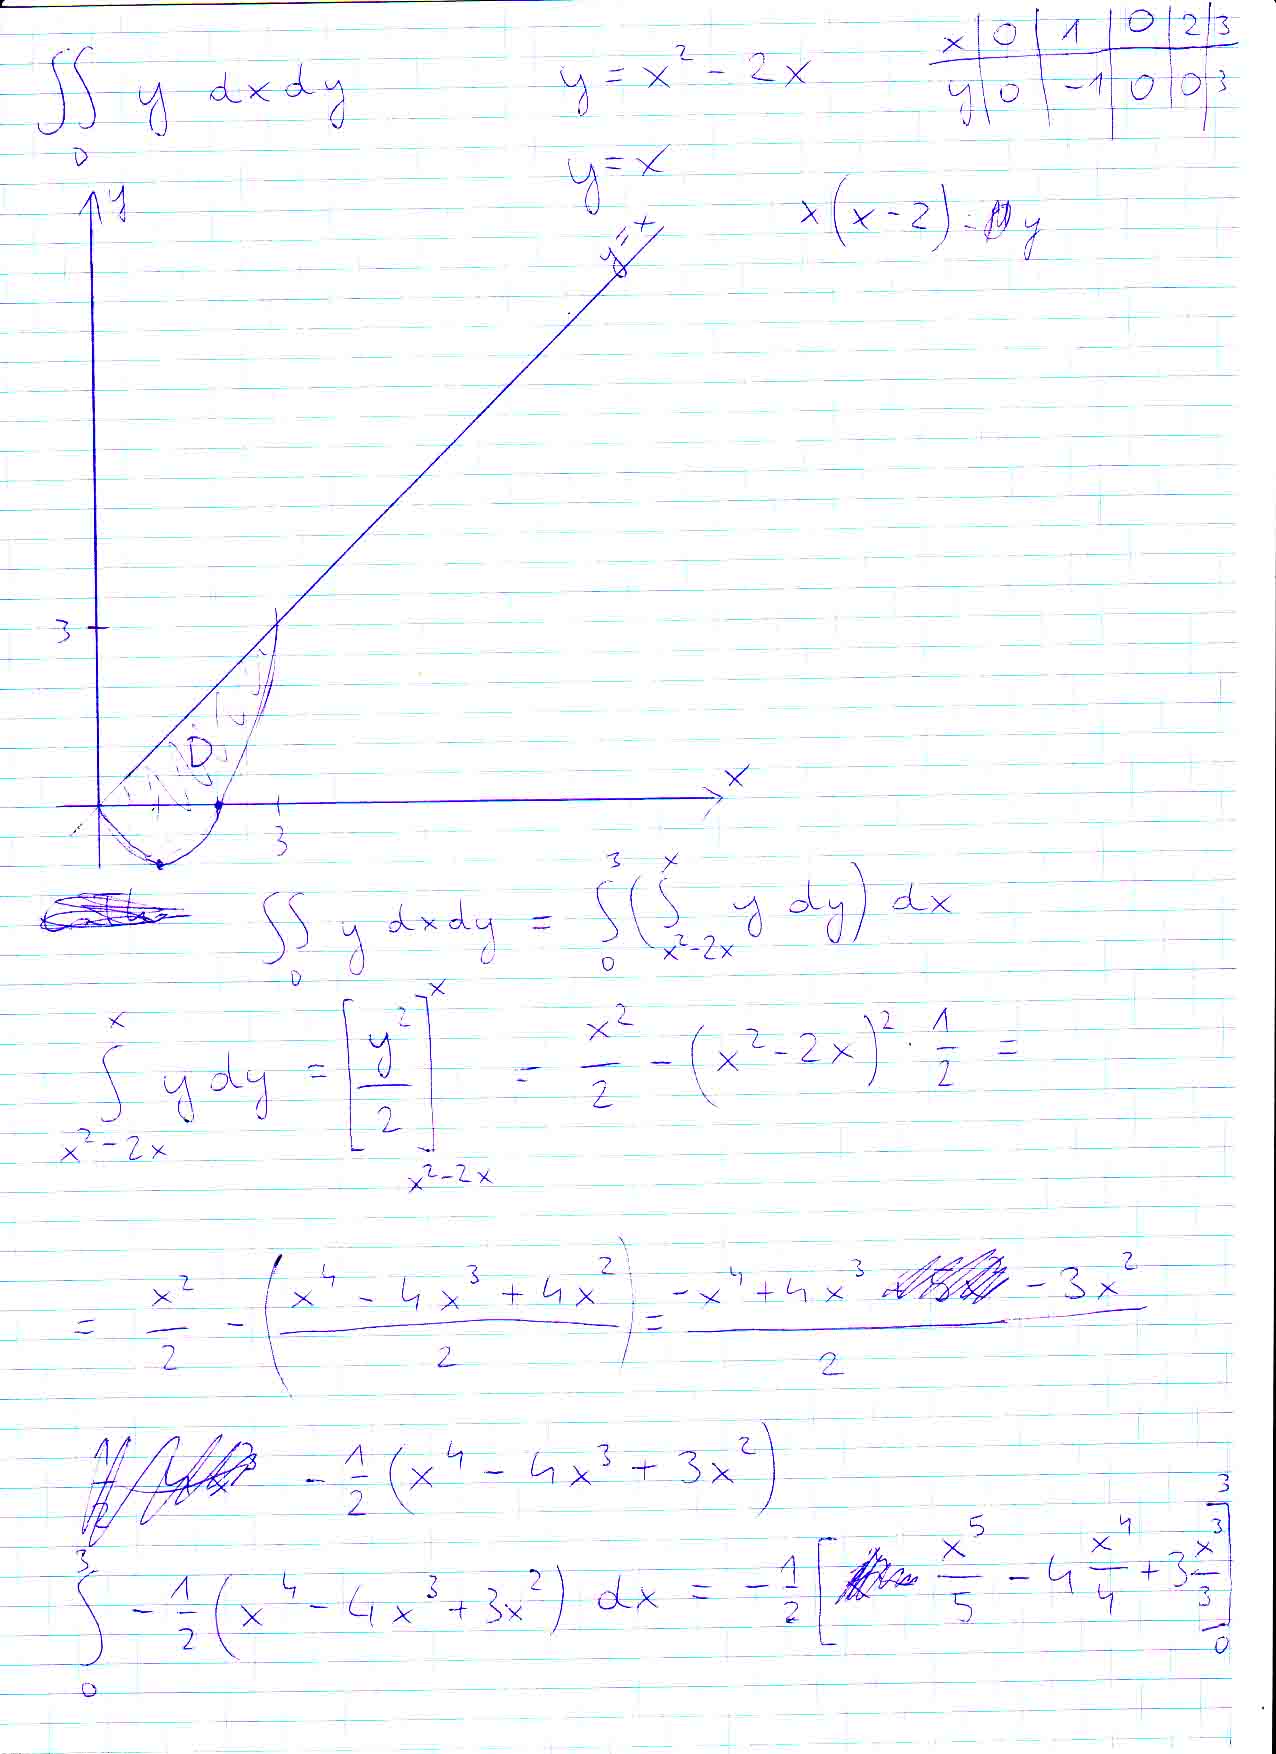 ∬ y dxdy    y = x² - 2x    x | 0 | 1 | 0 | 2 | 3
D    y | 0 | -1 | 0 | 0 | 3
y = x
y    x(x - 2) = y
y = x
3
D
x
3
∬_D y dxdy = ∫_0^3 ( ∫_{x²-2x}^x y dy ) dx
∫_{x²-2x}^x y dy = [ y²/2 ]_{x²-2x}^x = x²/2 - (x² - 2x)² · 1/2 =
= x²/2 - ( (x⁴ - 4x³ + 4x²)/2 ) = (-x⁴ + 4x³ - 3x²)/2
- 1/2 (x⁴ - 4x³ + 3x²)
∫_0^3 - 1/2 (x⁴ - 4x³ + 3x²) dx = - 1/2 [ x⁵/5 - 4 x⁴/4 + 3 x³/3 ]_0^3